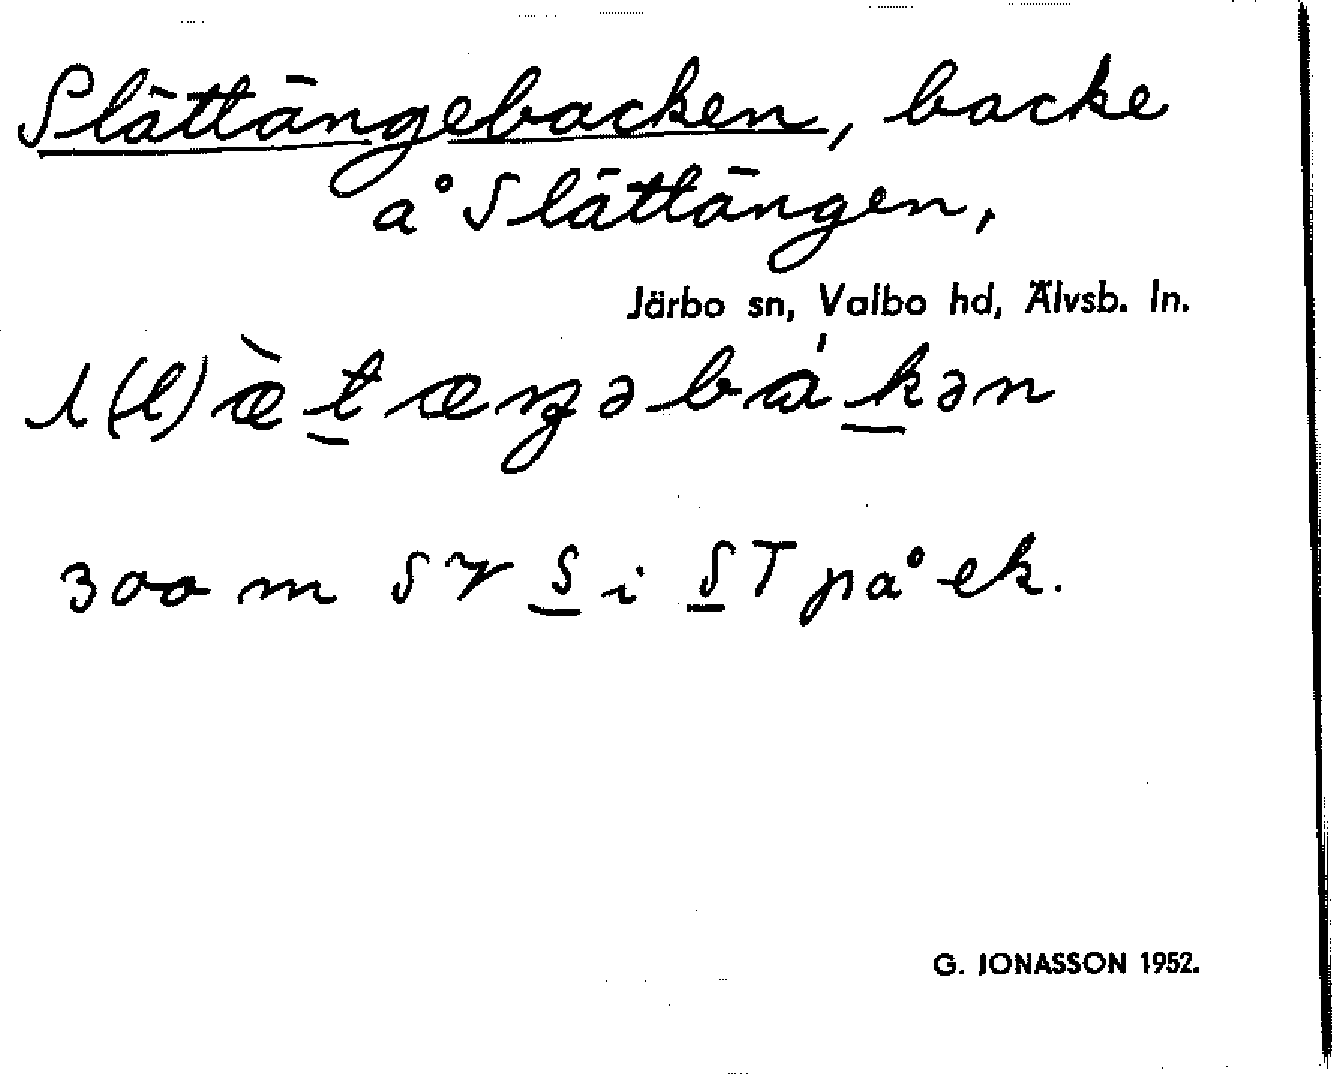 Slättängebacken, backe
å Slättängen,
Järbo sn, Valbo hd, Älvsb. ln.
s(l)æ̀t̲æŋəbák̲ən
300 m SV S̲ i S̲T på ek.
G. JONASSON 1952.